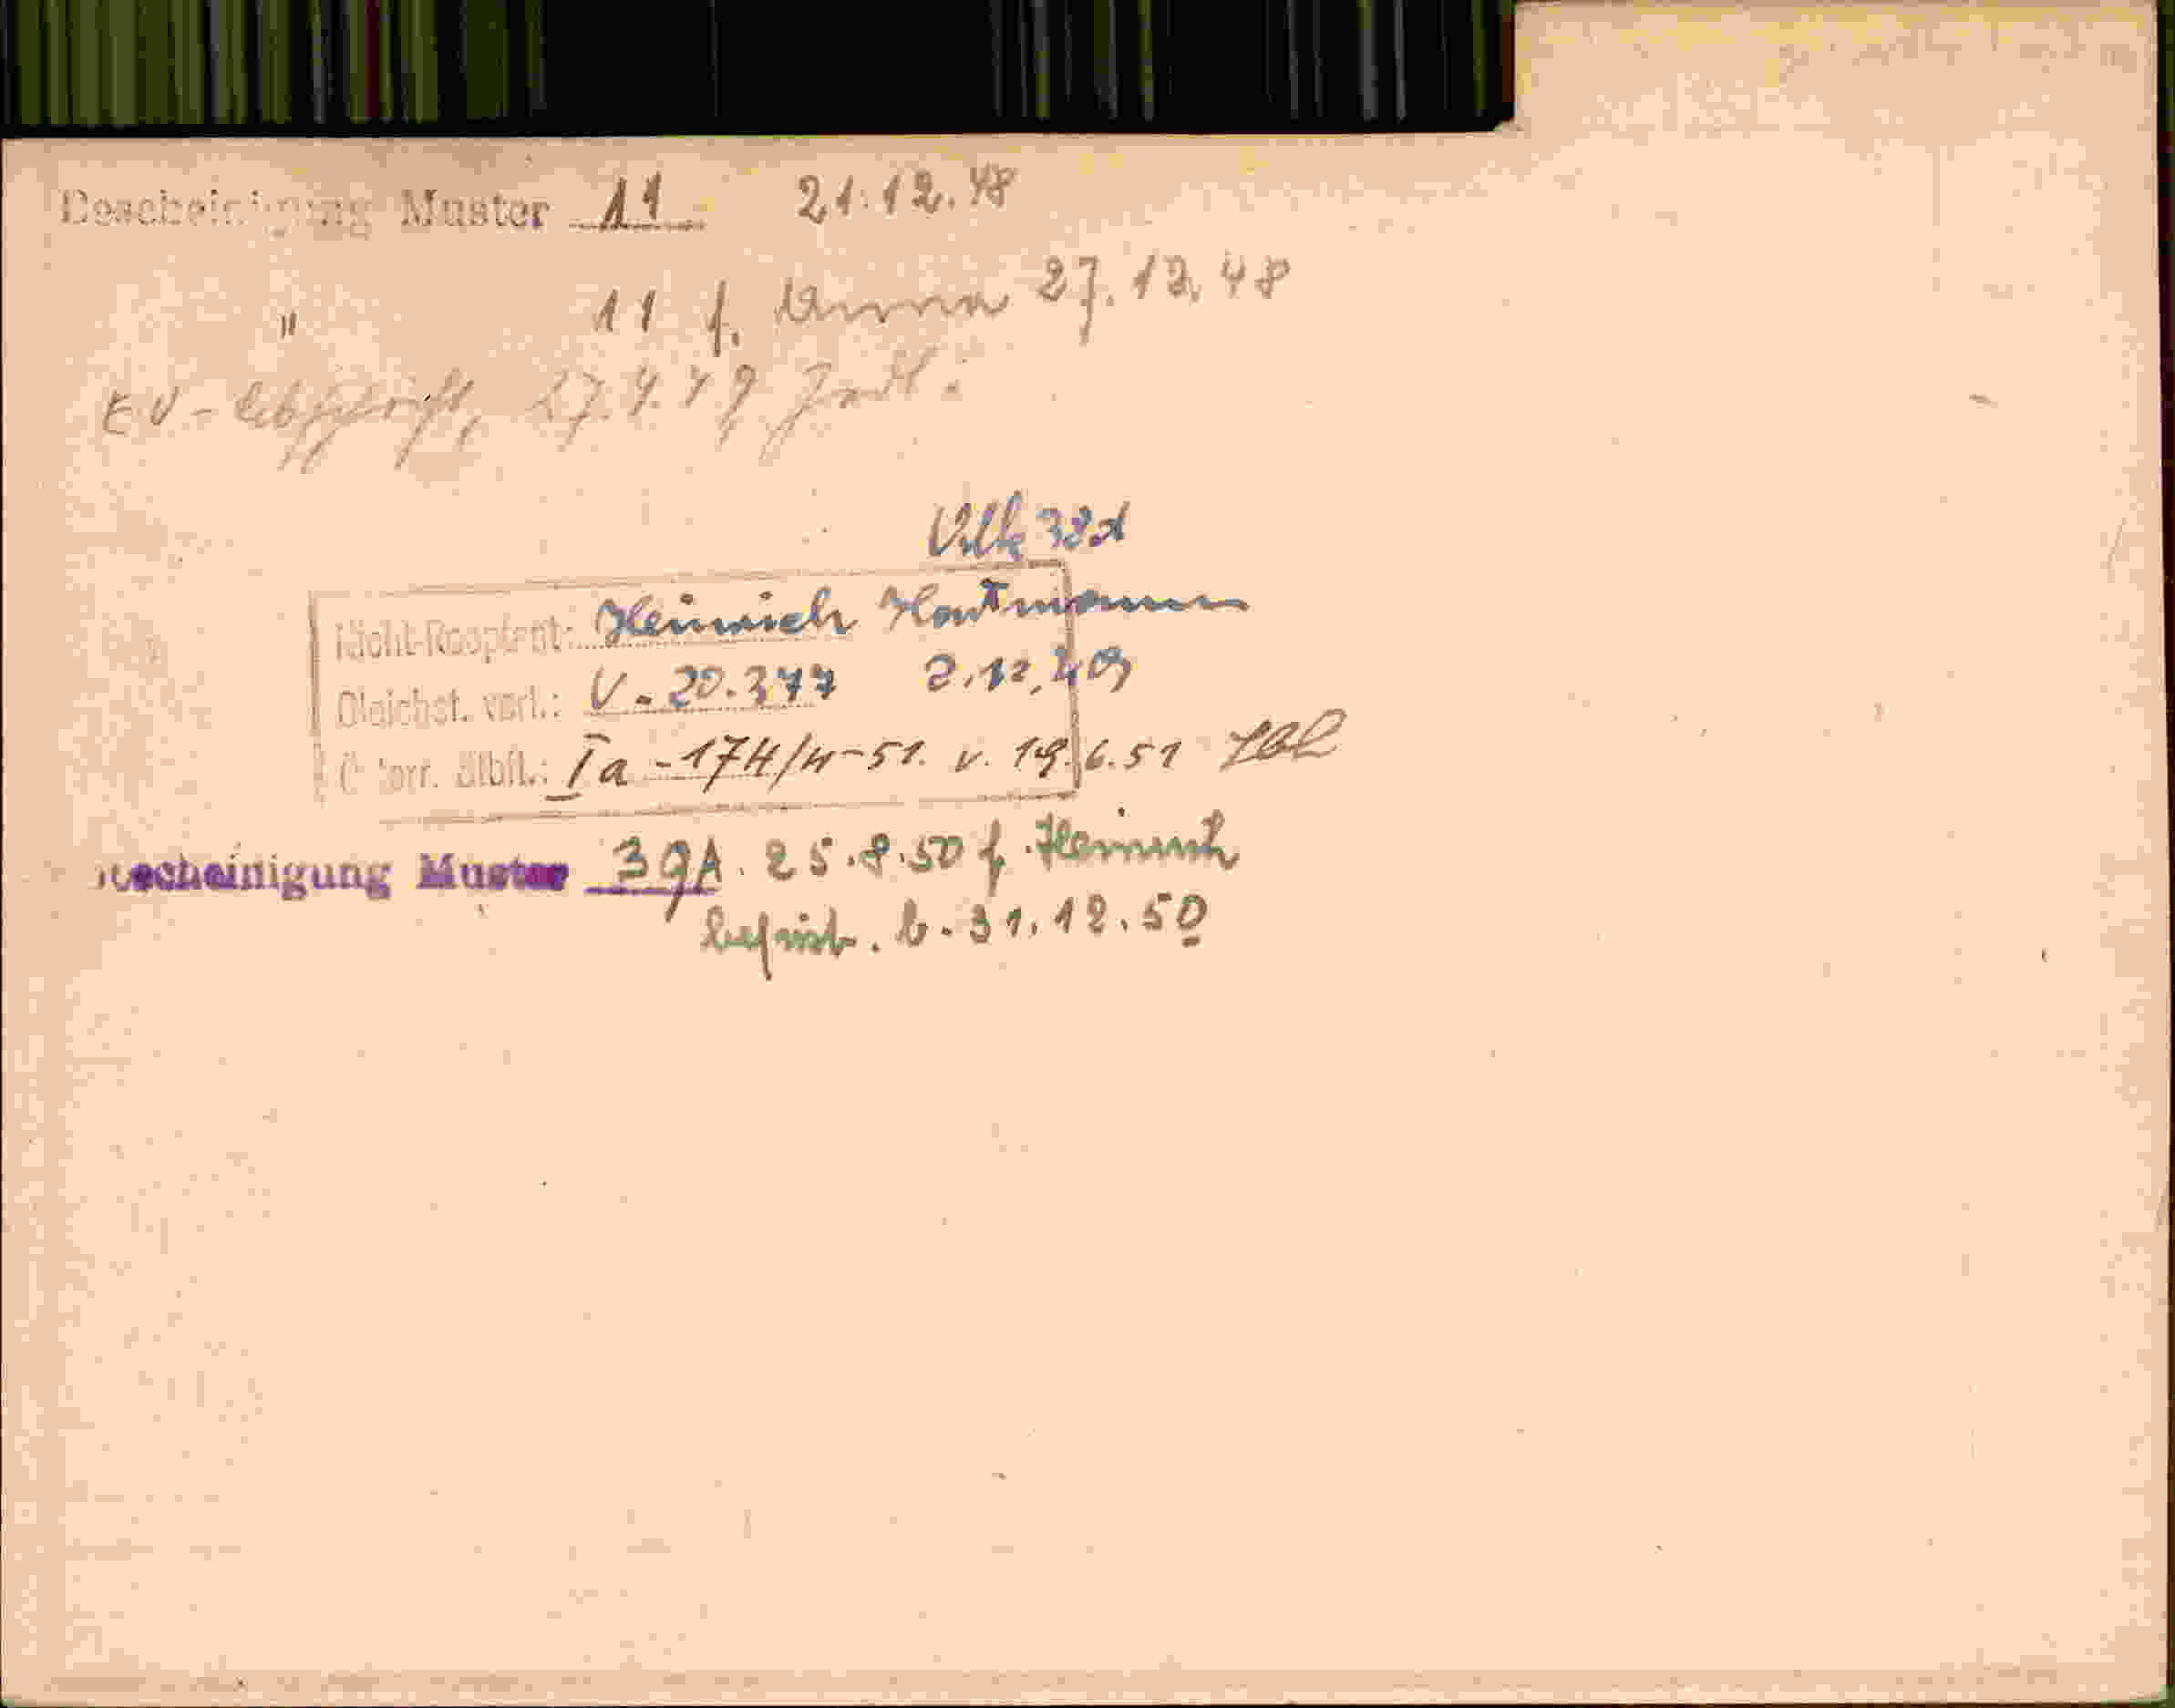 Bescheinigung Muster 11 21.12.48
" 11 f. Anna 27.12.48
EV-Abschrift, 27.4.49
Heinrich Hartmann
Gleichst. vorl.: V-20.377 2.12.49
Ia-174/W-51. v. 19.6.51
Bescheinigung Muster 39A. 25.8.50 f. Heinrich
befrist. b. 31.12.50